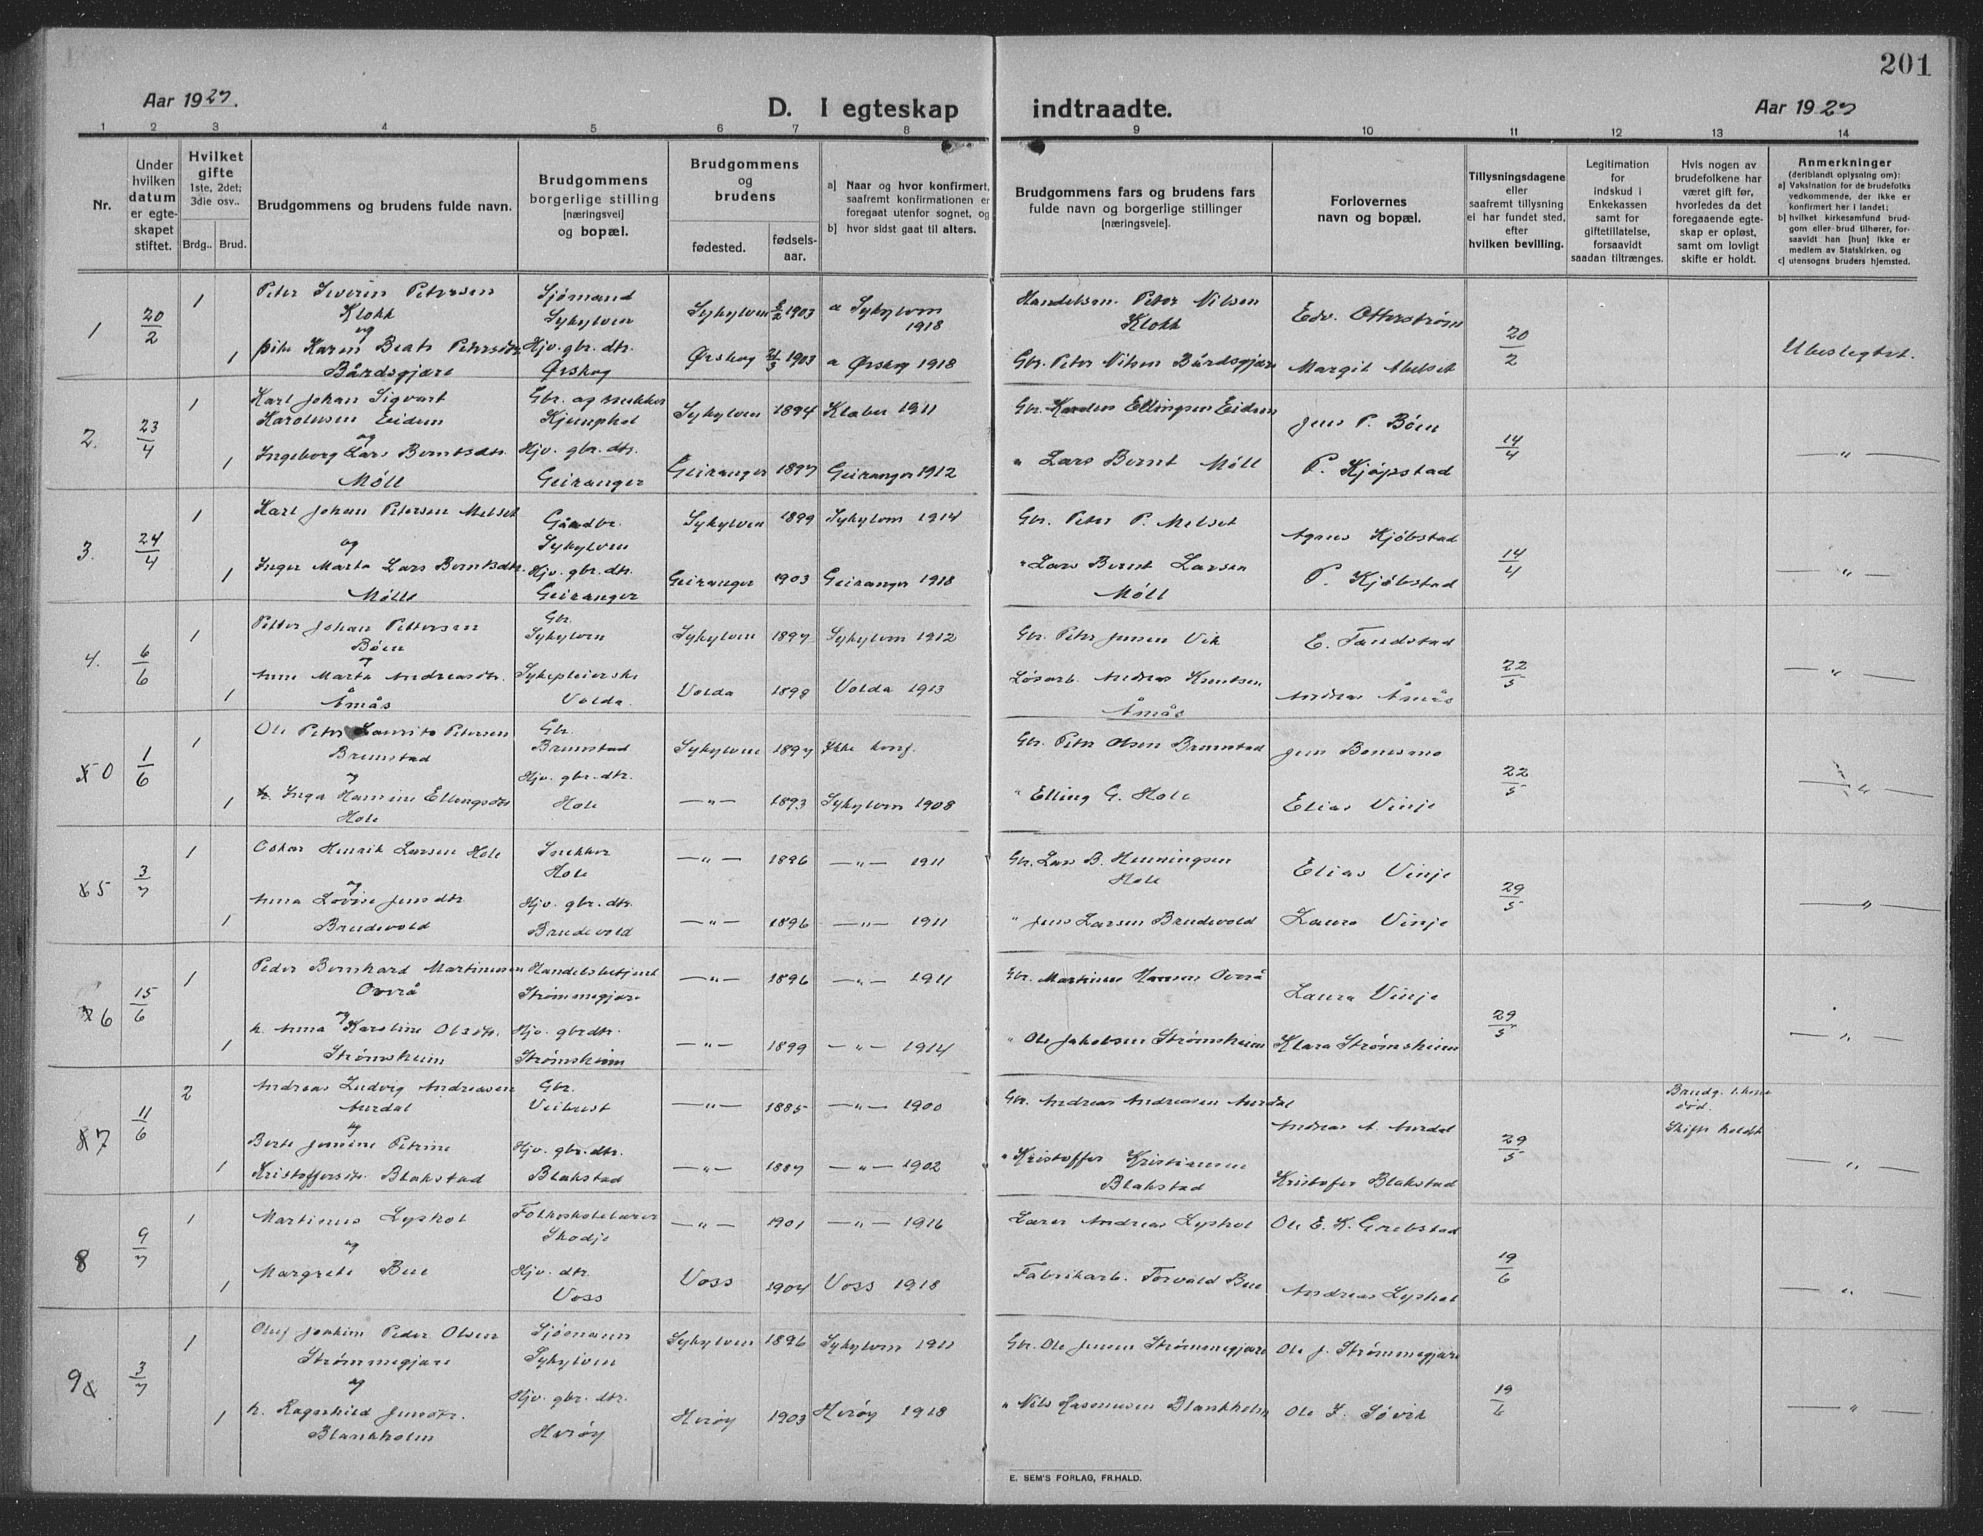 201
Aar 1927.
D. I egteskap indtraadte.
Aar 1927
1 2 3 4 5 6 7 8 9 10 11 12 13 14
Nr.
Under hvilken datum er egteskapet stiftet.
Hvilket gifte 1ste, 2det; 3die osv..
Brdg.. Brud.
Brudgommens og brudens fulde navn.
Brudgommens borgerlige stilling [næringsvei] og bopæl.
Brudgommens og brudens
fødested.
fødselsaar.
a] Naar og hvor konfirmert, saafremt konfirmationen er foregaat utenfor sognet, og
b] hvor sidst gaat til alters.
Brudgommens fars og brudens fars fulde navn og borgerlige stillinger [næringsveie].
Forlovernes navn og bopæl.
Tillysningsdagene eller saafremt tillysning ei har fundet sted, efter hvilken bevilling.
Legitimation for indskud i Enkekassen samt for giftetillatelse, forsaavidt saadan tiltrænges.
Hvis nogen av brudefolkene har været gift før, hvorledes da det foregaaende egteskap er opløst, samt om lovligt skifte er holdt.
Anmerkninger (deriblandt oplysning om):
a] Vaksination for de brudefolks vedkommende, der ikke er konfirmert her i landet;
b] hvilket kirkesamfund brudgom eller brud tilhører, forsaavidt han [hun] ikke er medlem av Statskirken, og
c] utensogns bruders hjemsted.
1 20/2 1 Peter Severin Petersen Klokk Sjømand Sykylven Sykylven 5/2 1903 a Sykylven 1918 Handelsm. Peter Nilsen Klokk Edv. Otterstrøm 20/2 Ubeslegtet.
og
1 pike Karen Beate Petersdtr Bårdsgjære Hjv. gbr. dtr. Ørskog Ørskog 21/3 1903 a Ørskog 1918 Gbr. Peter Nilsen Bårdsgjære Margit Melset
2. 23/4 1 Karl Johan Sigvart Karolusen Eidem Gbr. og snekker Sykylven 1894 Klæbu 1911 Gbr. Karolus Ellingsen Eidem Jens P. Bøen 14/4 — " —
og
1 Ingeborg Lars Berntsdtr. Møll Hjv. gbr. dtr. Geiranger Geiranger 1897 Geiranger 1912 " Lars Bernt Møll P. Kjøpstad
3. 24/4 1 Karl Johan Petersen Melset Gårdbr. Sykylven Sykylven 1899 Sykylven 1914 Gbr. Peter P. Melset Agnes Kjøbstad 14/4 — " —
og
1 Inger Marta Lars Berntsdtr. Mølle Hjv. gbr. dtr. Geiranger Geiranger 1903 Geiranger 1918 " Lars Bernt Larsen Møll P. Kjøbstad
4. 6/6 1 Petter Johan Pettersen Bøen Gbr. Sykylven Sykylven 1897 Sykylven 1912 Gbr. Peter Jensen Vik E. Tandstad 22/5 — " —
og
1 Anne Marta Andreasdtr. Åmås Sykepleierske Volda. Volda 1898 Volda 1913 Løsarb. Andreas Knutsen Åmås Andreas Åmås
50 1/6 1 Ole Peter Laurits Petersen Brunstad Gbr. Brunstad Sykylven 1897 Ikke konf. Gbr. Peter Olsen Brunstad Jens Bonesmo 22/5 — " —
og
1 Inga Hamine Ellingsdtr Hole Hjv. gbr. dtr. Hole — " — 1893 Sykylven 1908 " Elling G. Hole Elias Vinje
65 3/7 1 Oskar Henrik Larsen Hole Snekker Hole — " — 1896 — " — 1911 Gbr. Lars B. Henningsen Hole Elias Vinje 29/5 — " —
og
1 Anna Lovise Jensdtr Brudevold Hjv. gbr. dtr. Brudevold — " — 1896 — " — 1911 " Jens Larsen Brudevold Laura Vinje
6 15/6 1 Peder Bernhard Martinusen Overå Handelsbetjent Strømmegjære — " — 1896 — " — 1911 Gbr. Martinus Hansen Overå Laura Vinje 29/5 — " —
og
1 h. Anna Karoline Olsdtr. Strømsheim Hjv. gbrdtr. Strømsheim — " — 1899 — " — 1914 " Ole Jakobsen Strømsheim Klara Strømsheim
87 11/6 2 Andreas Ludvig Andreasen Aurdal Gbr. Veibust — " — 1885 — " — 1900 Gbr. Andreas Andreasen Aurdal Andreas A. Aurdal 29/5 Brudg. 1. kone død. Skifte holdt — " —
og
1 Berte Jensine Petrine Kristoffersdtr. Blakstad Hjv. gbr. dtr. Blakstad — " — 1887 — " — 1902 " Kristoffer Kristiansen Blakstad Kristofer Blakstad
8 9/7 1 Martinus Lyshol Folkeskolelærer Skodje — " — 1901 — " — 1916 Lærer Andreas Lyshol Ole E. K. Grebstad 19/6 — " —
og
1 Margrete Bue Hjv. dtr. Voss Voss 1904 Voss 1918 Fabrikarb. Torvald Bue Andreas Lyshol
9 3/7 1 Oluf Joakim Peder Olsen Strømmegjære Sjømann Sykylven Sykylven 1896 Sykylven 1911 Gbr. Ole Jensen Strømmegjære Ole J. Strømmegjære 19/6 — " —
og
1 h. Ragnhild Jensdtr. Blankholm Hjv. gbr. dtr. Herøy Herøy 1903 Herøy 1918 " Nils Rasmussen Blankholm Ole J. Søvik
E. SEM'S FORLAG, FR.HALD.